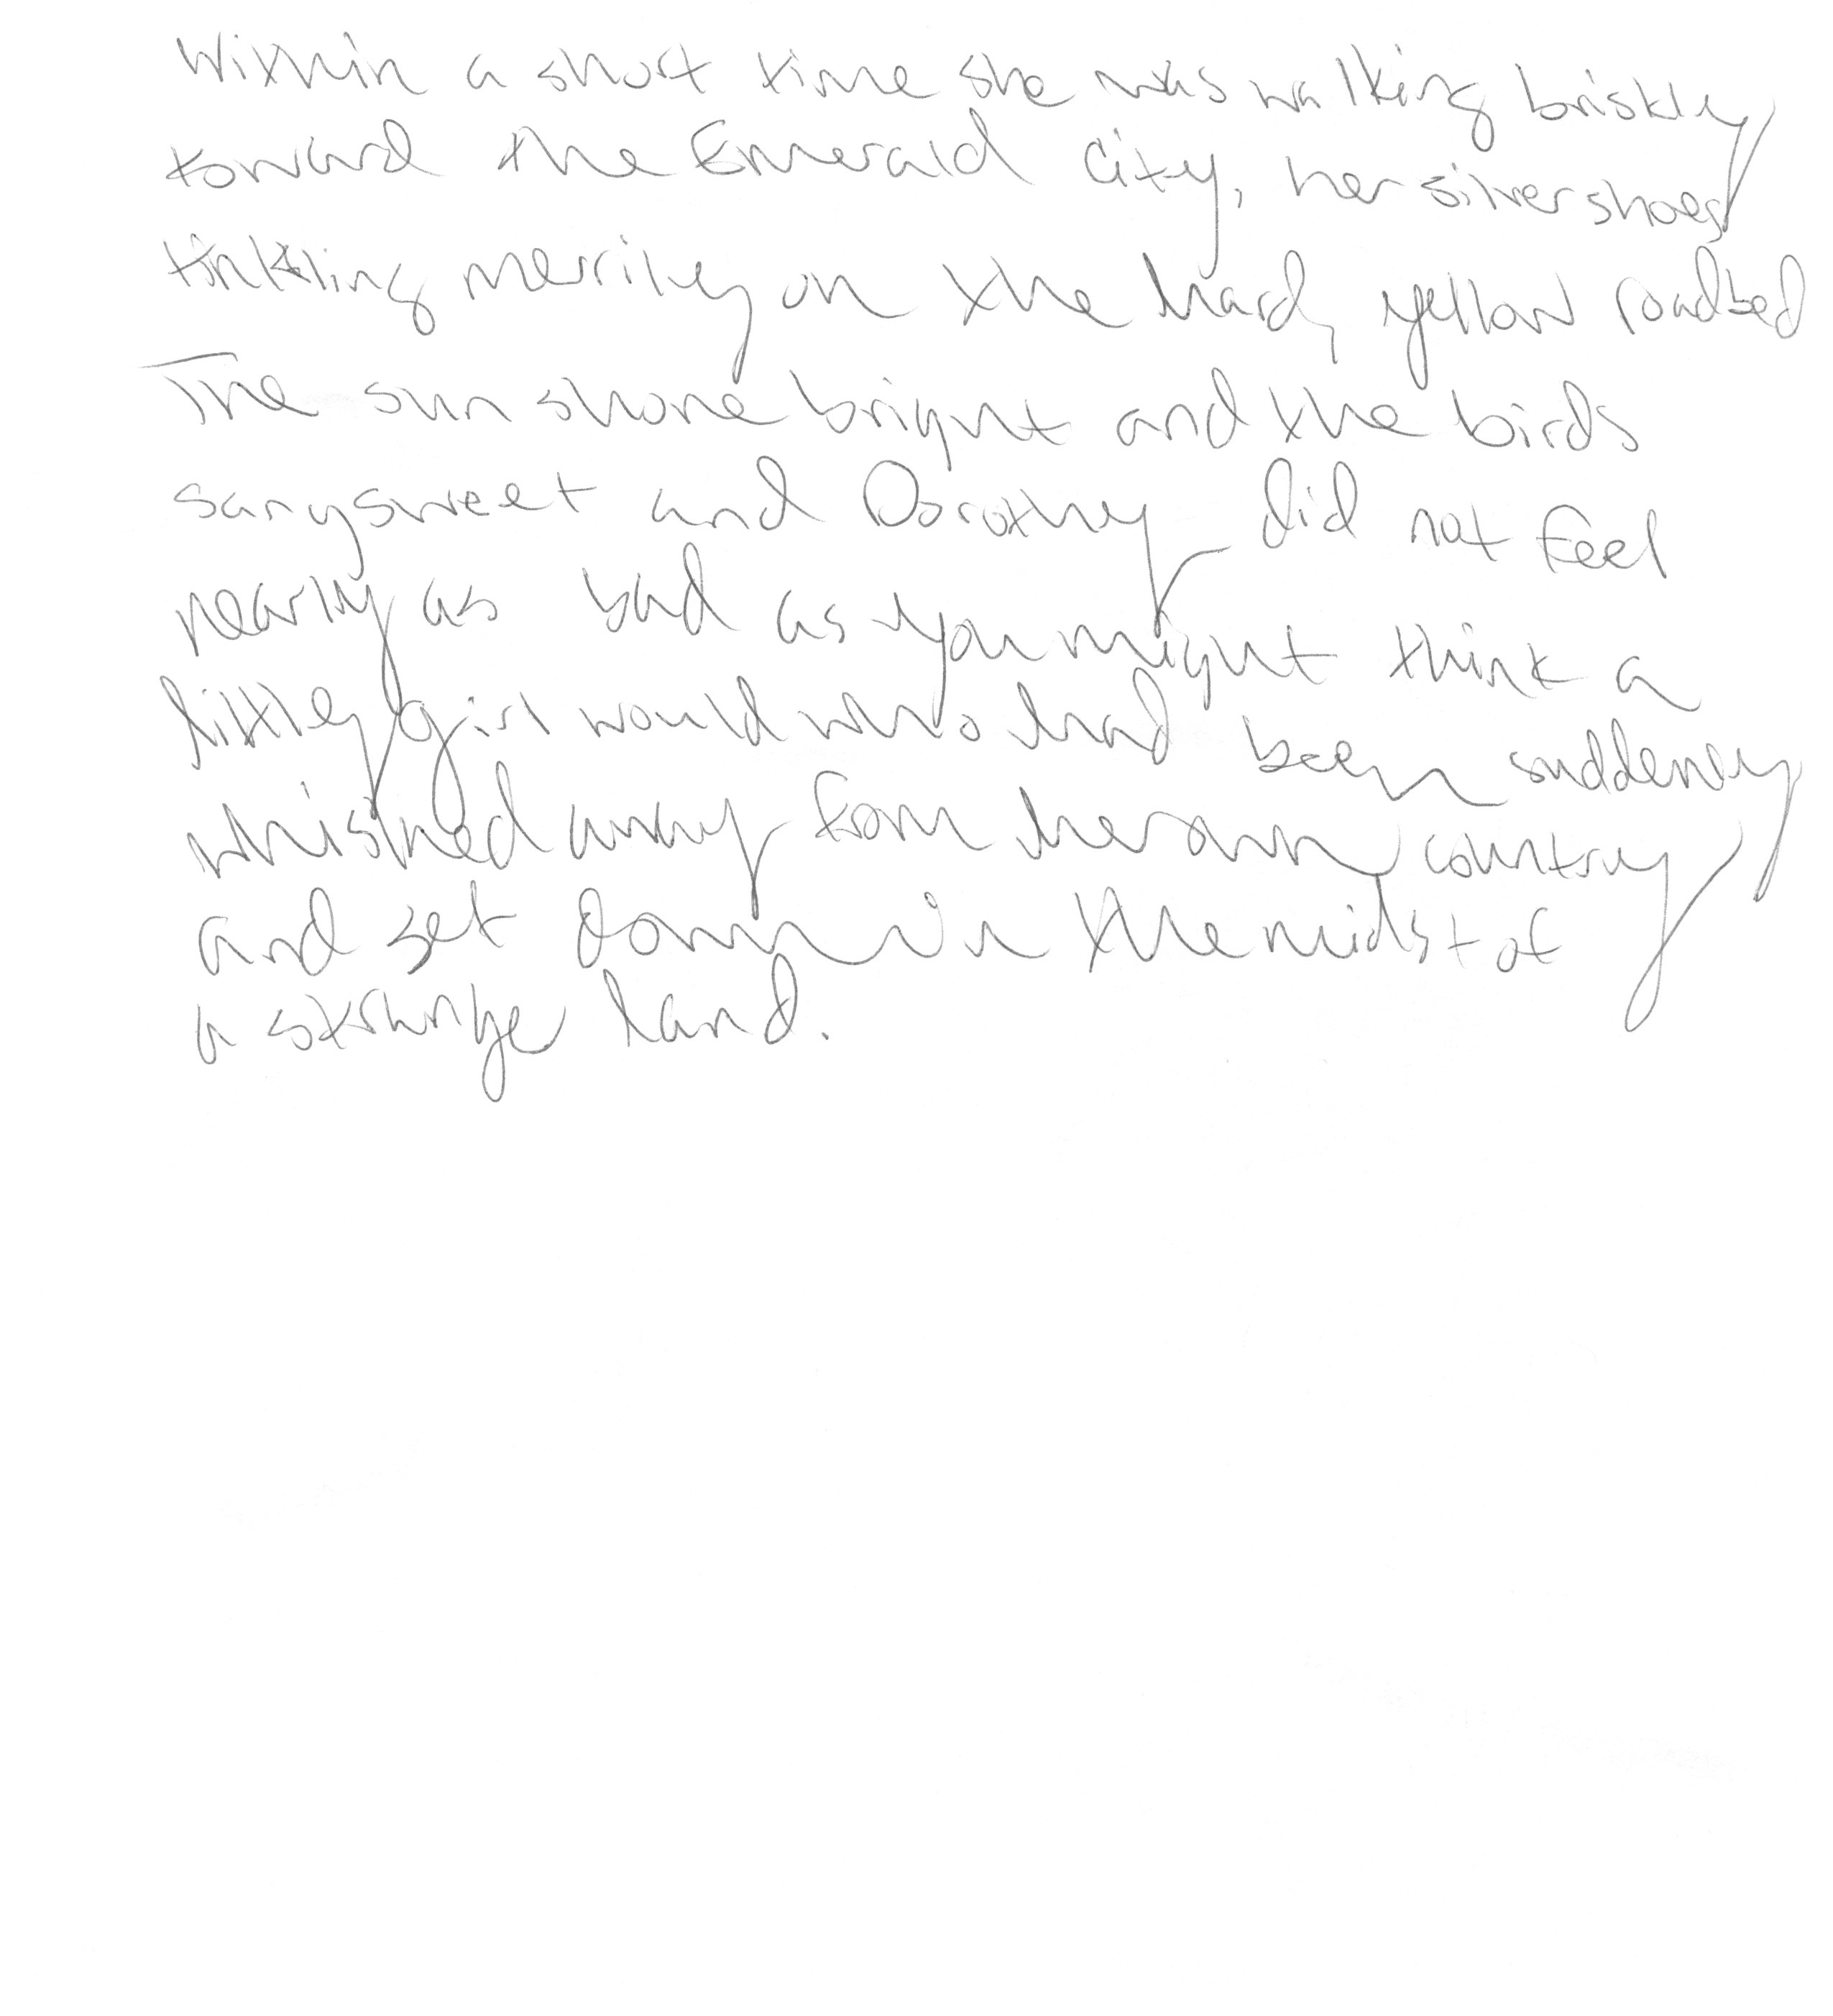 Within a short time she was walking briskly
toward the Emerald City, her silver shoes
tinkling merrily on the hard, yellow roadbed
The sun shone bright and the birds
sang sweet and Dorothy did not feel
nearly as bad as you might think a
little girl would who had been suddenly
whisked away from her own country
and set down in the midst of
a strange land.